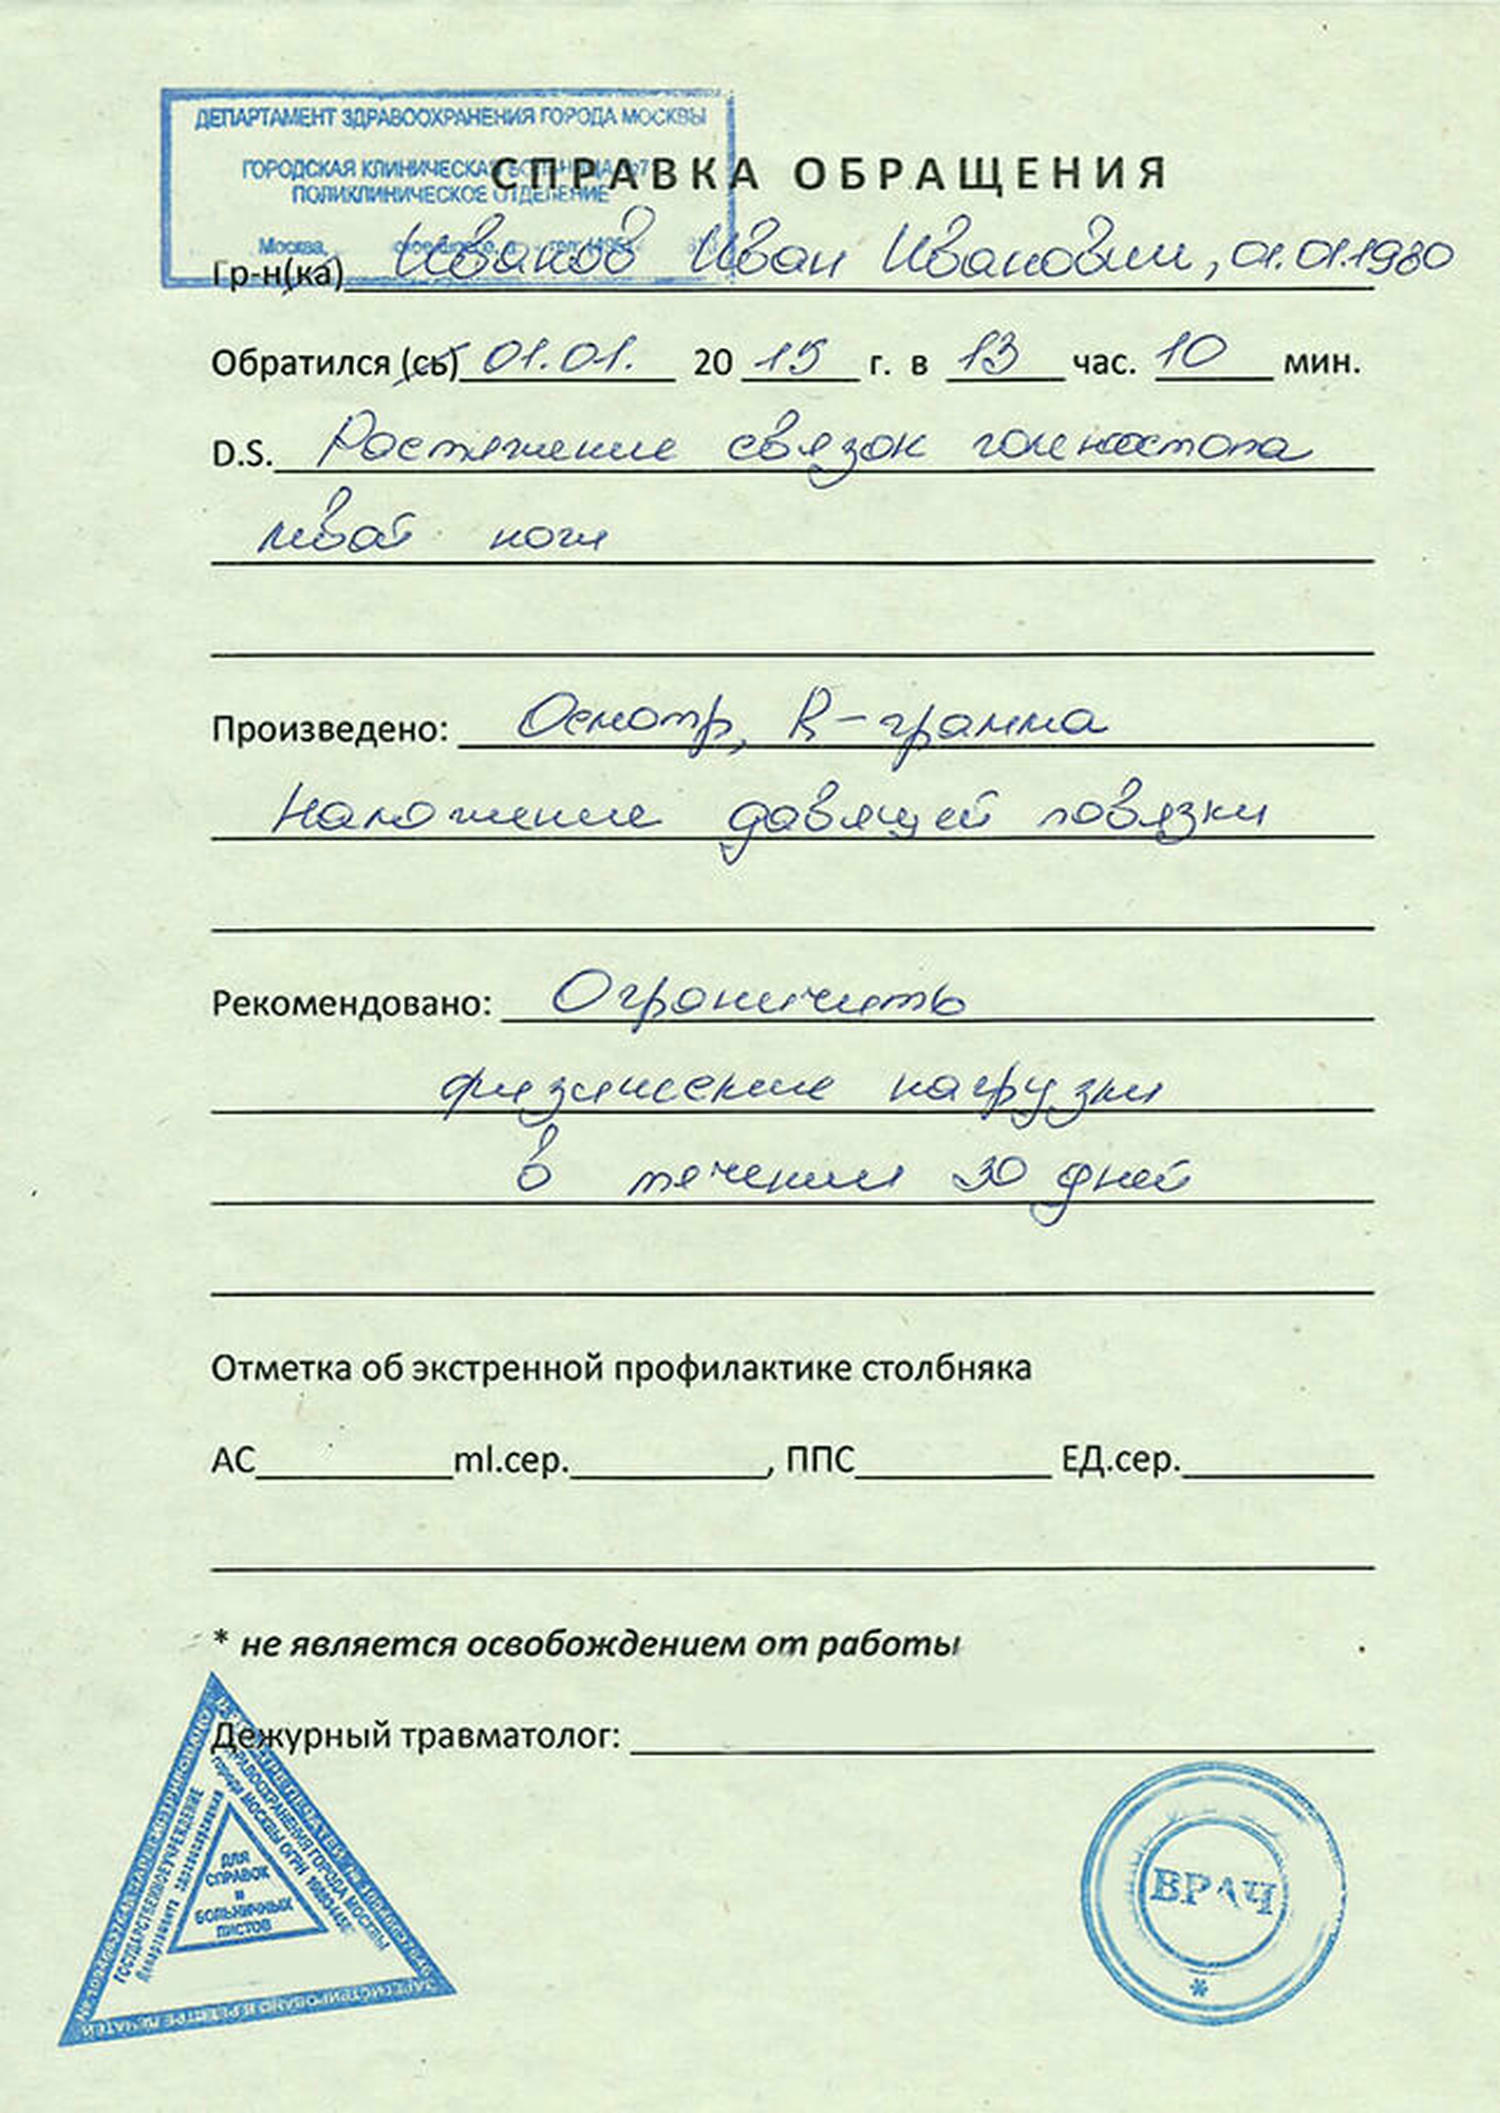 ДЕПАРТАМЕНТ ЗДРАВООХРАНЕНИЯ ГОРОДА МОСКВЫ
ГОРОДСКАЯ КЛИНИЧЕСКАЯ БОЛЬНИЦА №7
ПОЛИКЛИНИЧЕСКОЕ ОТДЕЛЕНИЕ
Москва,
СПРАВКА ОБРАЩЕНИЯ
Гр-н(ка) Иванов Иван Иванович, 01.01.1980
Обратился (сь) 01.01. 20 15 г. в 13 час. 10 мин.
D.S. Растяжение связок голеностопа
левой ноги
Произведено: Осмотр, R-грамма
Наложение давящей повязки
Рекомендовано: Ограничить
физические нагрузки
в течении 30 дней
Отметка об экстренной профилактике столбняка
АС ml.сер. , ППС ЕД.сер.
* не является освобождением от работы
Дежурный травматолог:
ГОСУДАРСТВЕННОЕ УЧРЕЖДЕНИЕ
Департамента здравоохранения
ЗДРАВООХРАНЕНИЯ ГОРОДА МОСКВЫ
города МОСКВЫ ОГРН
ДЛЯ
СПРАВОК
и
БОЛЬНИЧНЫХ
ЛИСТОВ
ЗАРЕГИСТРИРОВАНО В РЕЕСТРЕ ПЕЧАТЕЙ
ВРАЧ
*